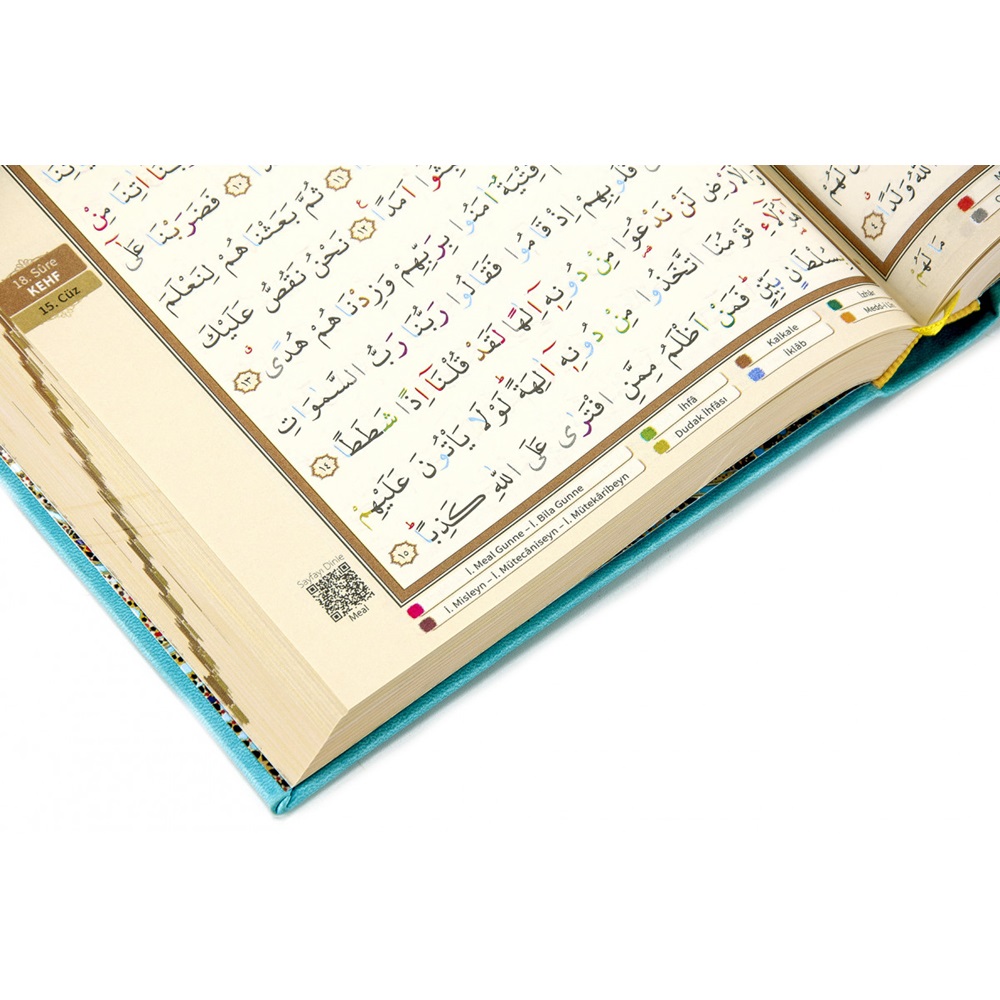 18. Sûre
KEHF
15. Cüz
مِنْ
اٰتِنَا
١٠ فَضَرَبْنَا عَلٰٓى
اَمَدًا ١٢ ثُمَّ بَعَثْنَا هُمْ لِنَعْلَمَ ١١
فِتْيَةٌ اٰمَنُوا بِرَبِّهِمْ وَزِدْنَا هُمْ هُدًى ١٣ نَحْنُ نَقُصُّ عَلَيْكَ
قُلُوبِهِمْ اِذْ قَامُوا فَقَالُوا رَبُّنَا رَبُّ السَّمٰوَاتِ
وَالْاَرْضِ لَنْ نَدْعُوَا مِنْ دُونِهٖٓ اِلٰهًا لَقَدْ قُلْنَٓا اِذًا شَطَطًا ١٤
قَوْمُنَا اتَّخَذُوا مِنْ دُونِهٖٓ اٰلِهَةً لَوْلَا يَأْتُونَ عَلَيْهِمْ
بَيِّنٍ فَمَنْ اَظْلَمُ مِمَّنِ افْتَرٰى عَلَى اللّٰهِ كَذِبًا ١٥
Sayfayı Dinle
Meal
İ. Meal Gunne – İ. Bila Gunne
İ. Misleyn – İ. Mütecâniseyn – İ. Mütekâribeyn
İhfâ
Dudak İhfâsı
Kalkale
İklâb
İzhâr
وَلَدًا ٤
مَا لَهُمْ